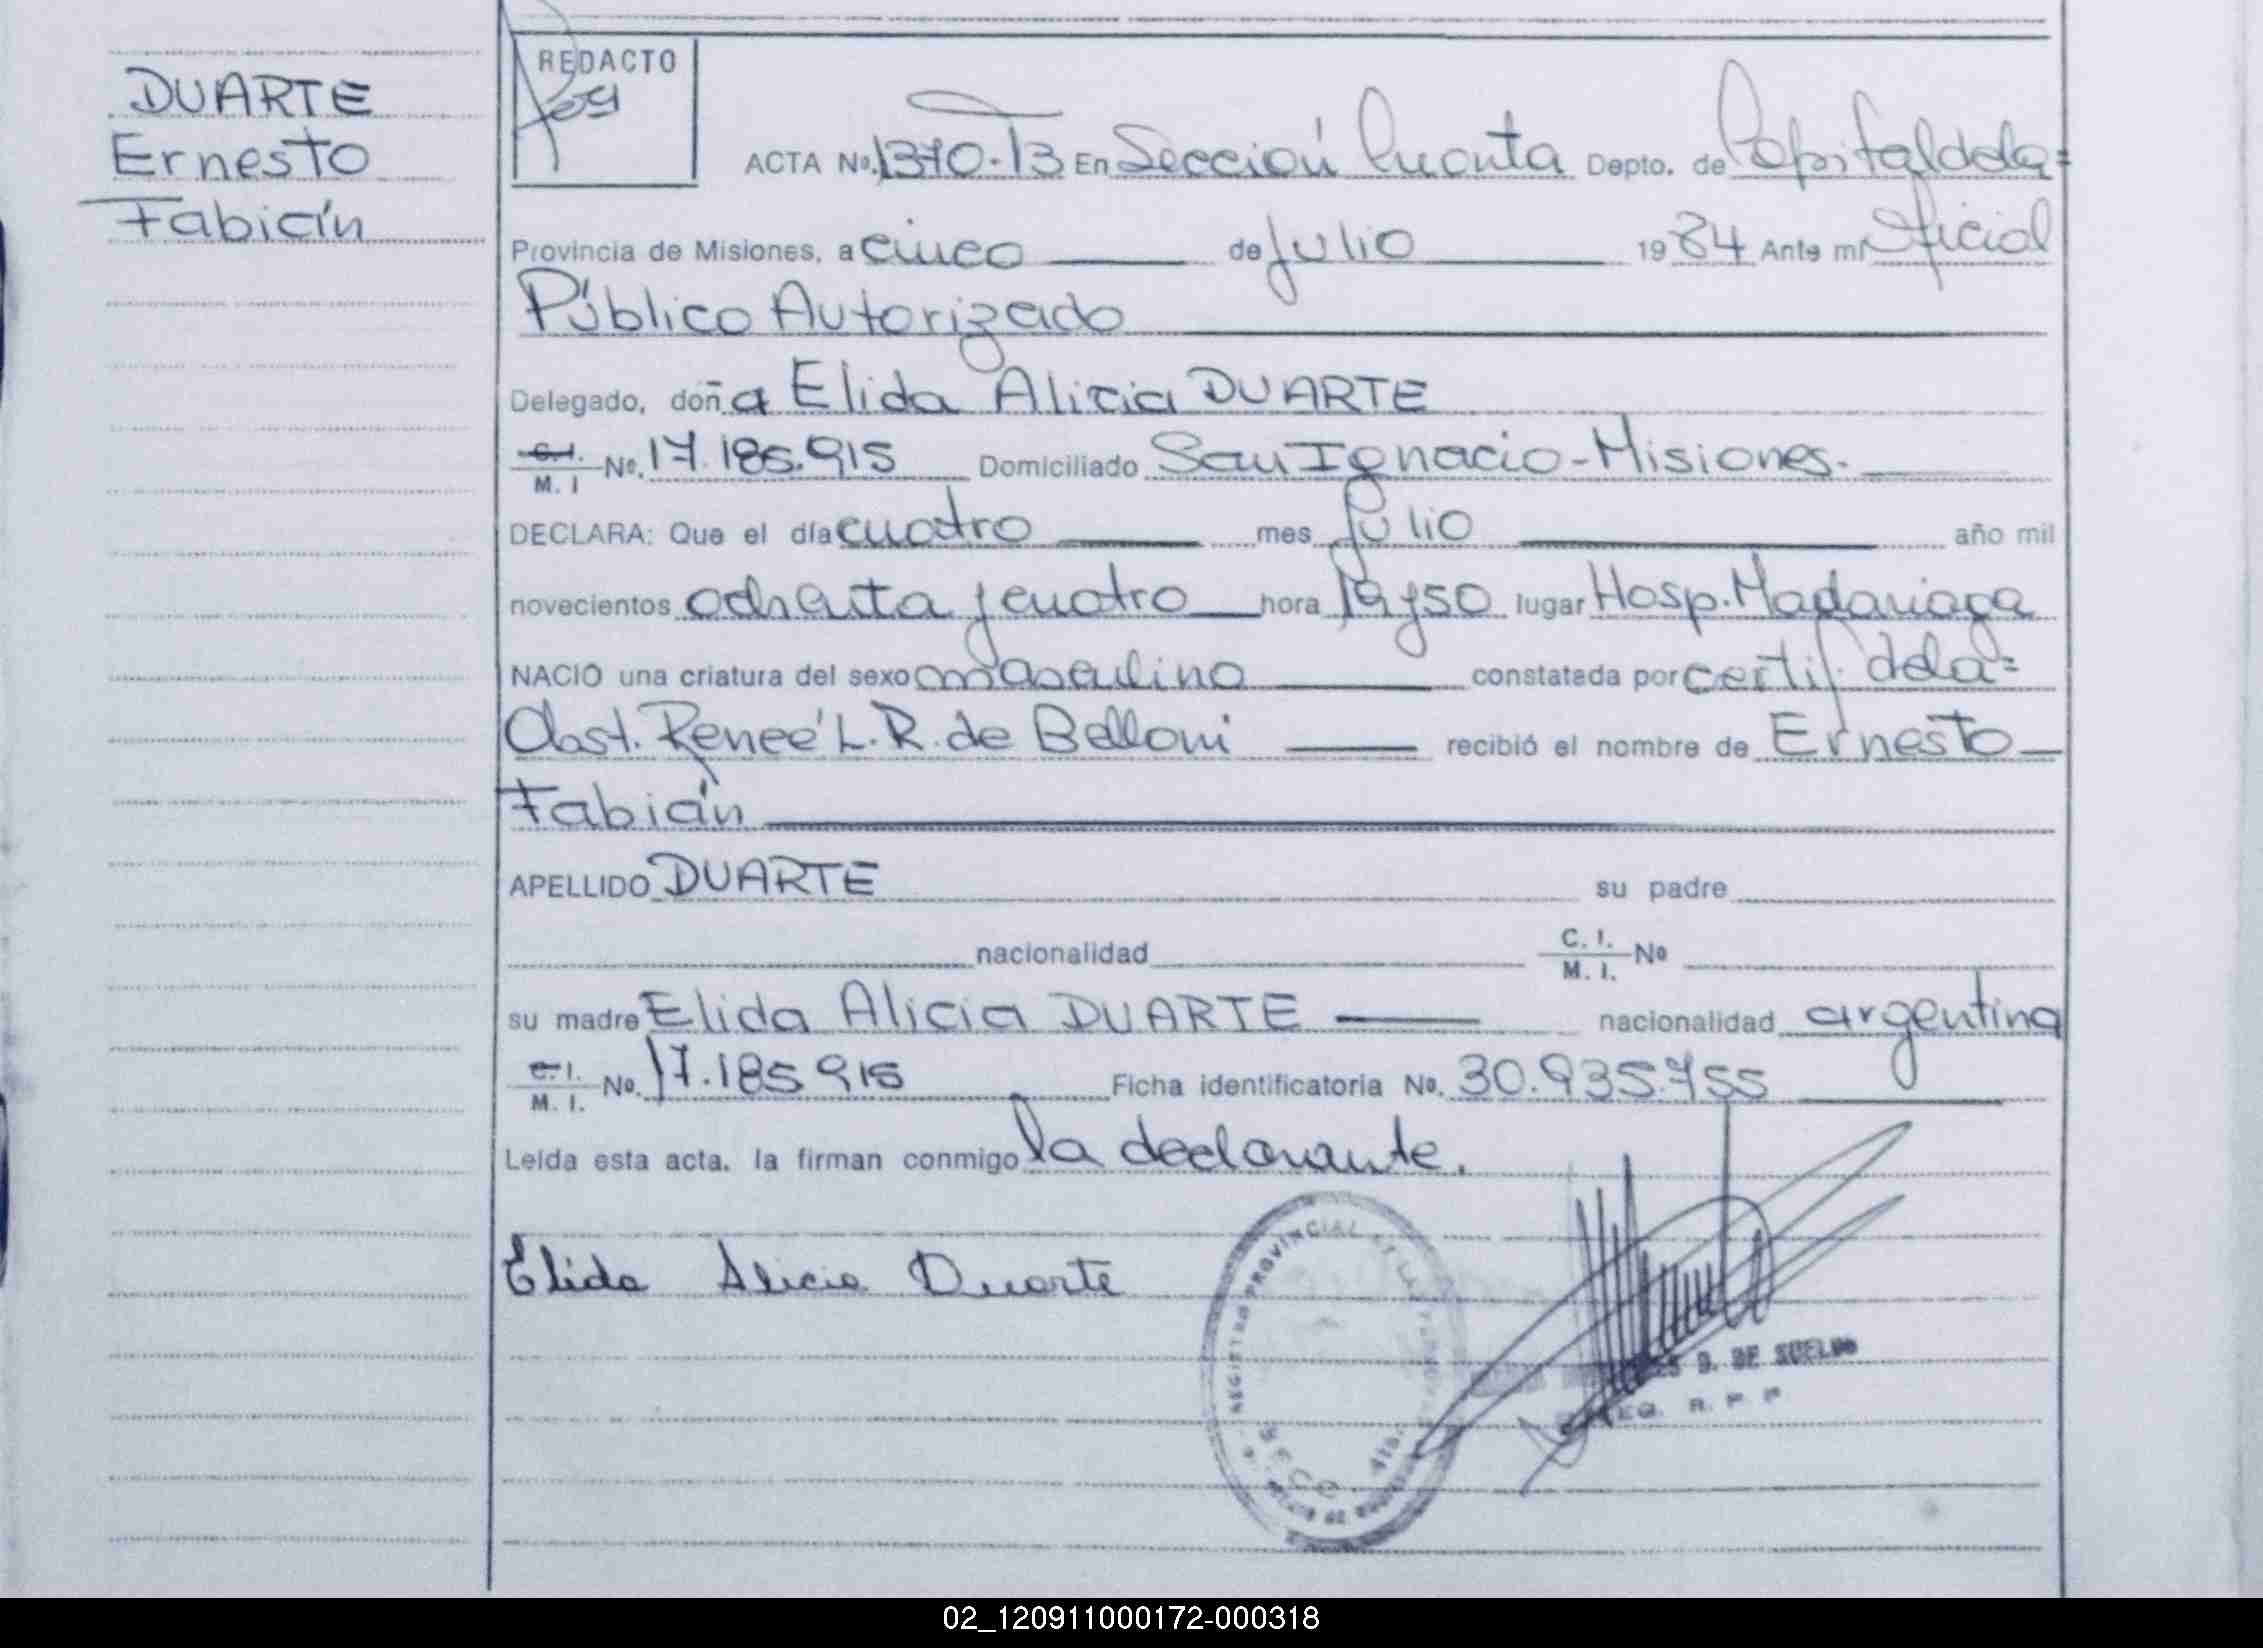 DUARTE
Ernesto
Fabián
REDACTO
ACTA Nº. 1370-T3 En Sección Cuarta Depto. de Capital de la=
Provincia de Misiones, a cinco de Julio 1984 Ante mí Oficial
Público Autorizado
Delegado, doña Elida Alicia DUARTE
C.I.
M. I Nº. 17.185.915 Domiciliado San Ignacio-Misiones.
DECLARA: Que el día cuatro mes Julio año mil
novecientos ochenta y cuatro hora 19 y 50 lugar Hosp. Madariaga
NACIO una criatura del sexo masculino constatada por certif. de la=
Obst. Reneé L. R. de Belloni recibió el nombre de Ernesto
Fabián
APELLIDO DUARTE su padre
nacionalidad C. I.
M. I. Nº
su madre Elida Alicia DUARTE nacionalidad argentina
C.I.
M. I. Nº. 17.185 915 Ficha identificatoria Nº. 30.935.755
Leída esta acta. la firman conmigo la declarante.
Elida Alicia Duarte
REGISTRO PROVINCIAL DE LAS PERSONAS
SECC. 4ta.
D. DE SUELDO
R. P. P
02_120911000172-000318